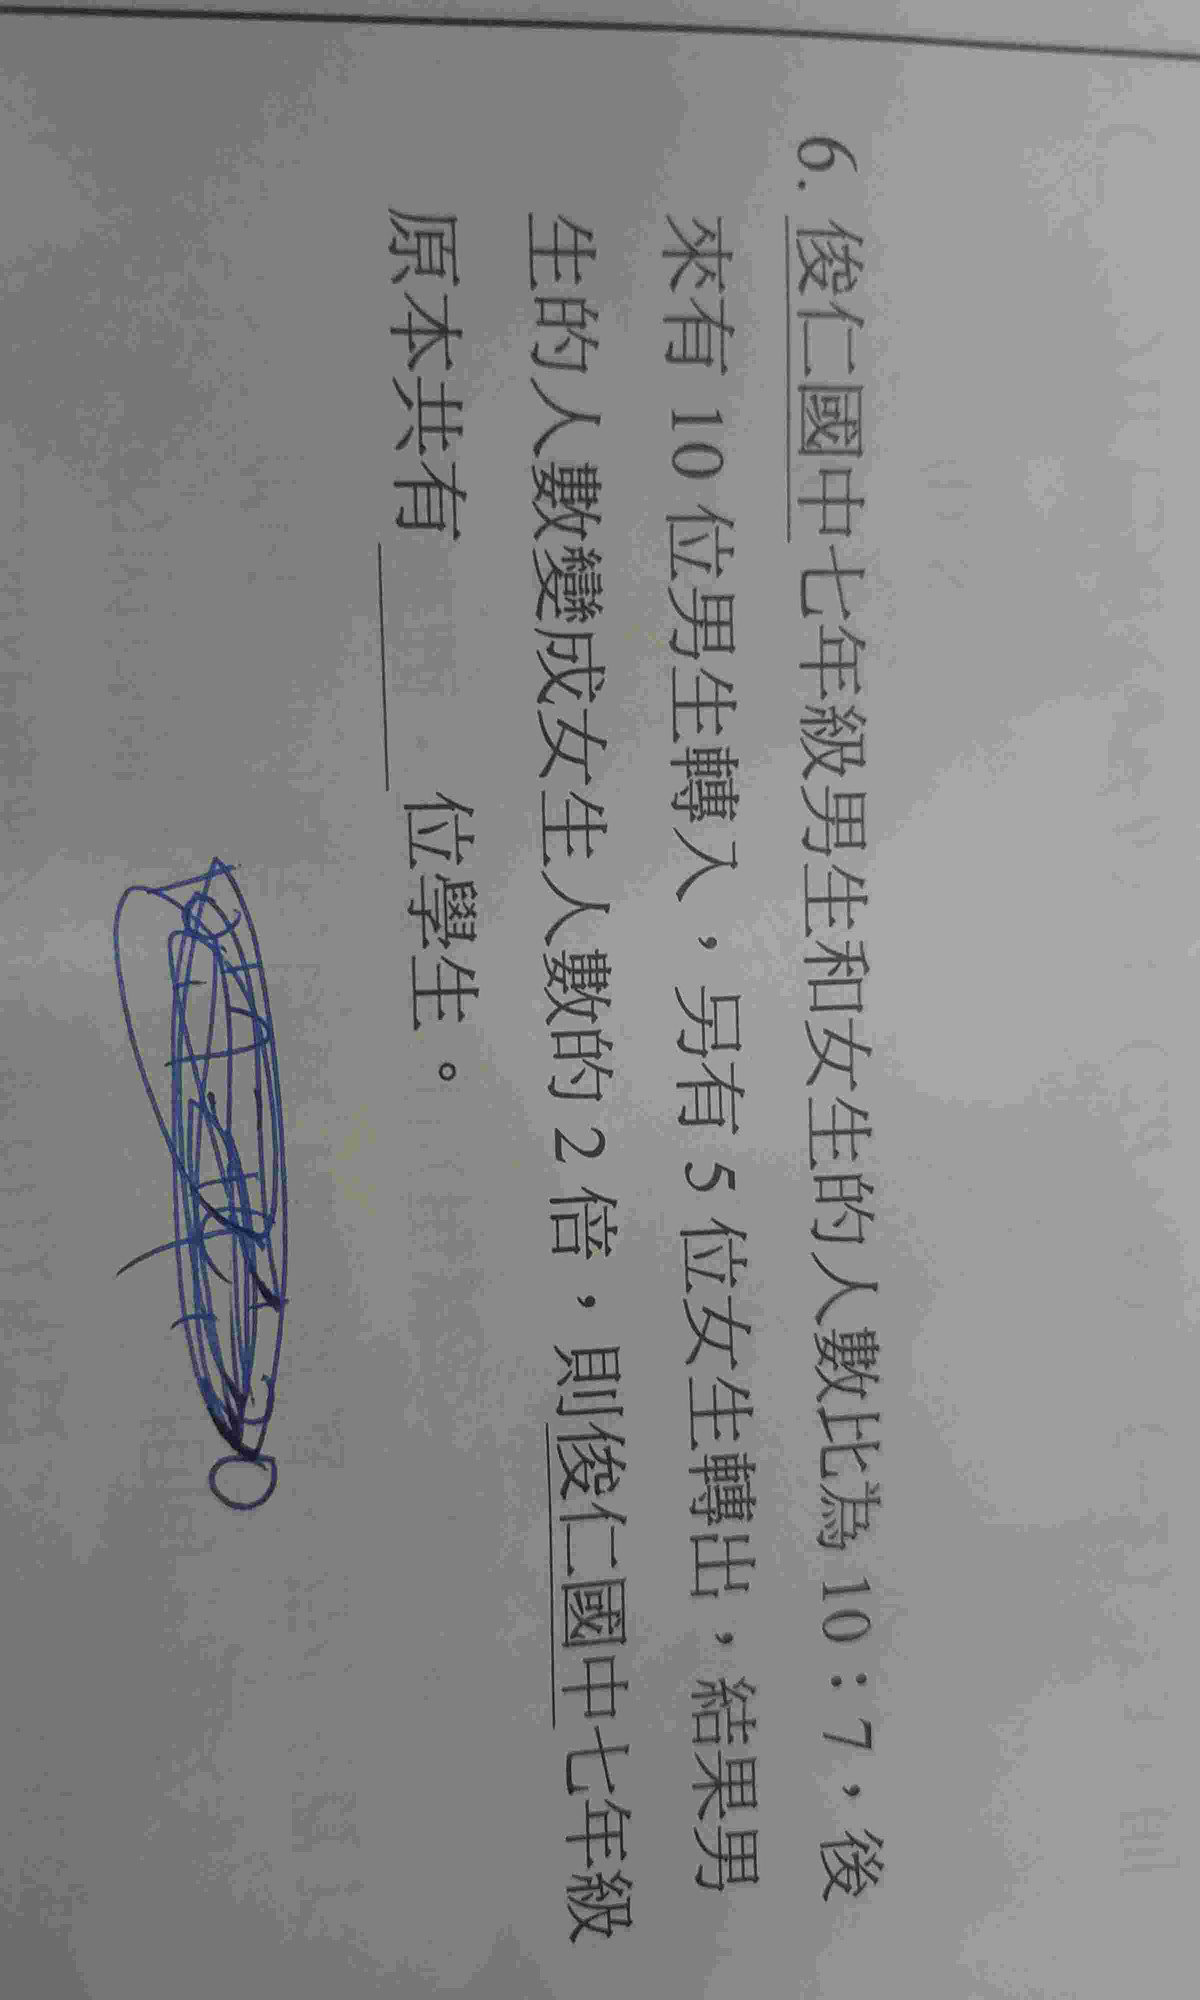 6. 俊仁國中七年級男生和女生的人數比為 10：7，後
來有 10 位男生轉入，另有 5 位女生轉出，結果男
生的人數變成女生人數的 2 倍，則俊仁國中七年級
原本共有______位學生。